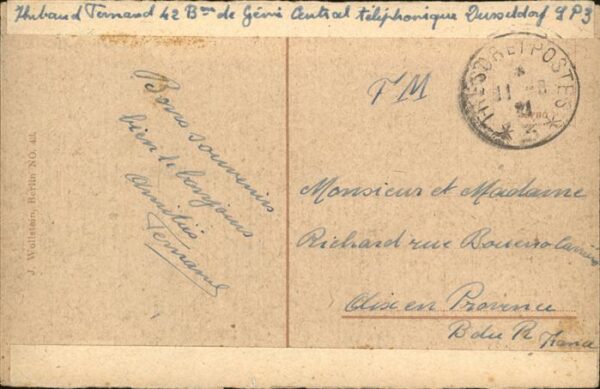 Thibaud Fernand 42 Bon de Génie Central téléphonique Dusseldorf SP3
FM
TRESOR ET POSTES
11 - 8
21
* 3 *
Bons souvenirs
bien le bonjours
Amitiés
Fernand
Monsieur et Madame
Richard rue
Aix en Provence
B du R France
J. Wollstein, Berlin NO. 43.